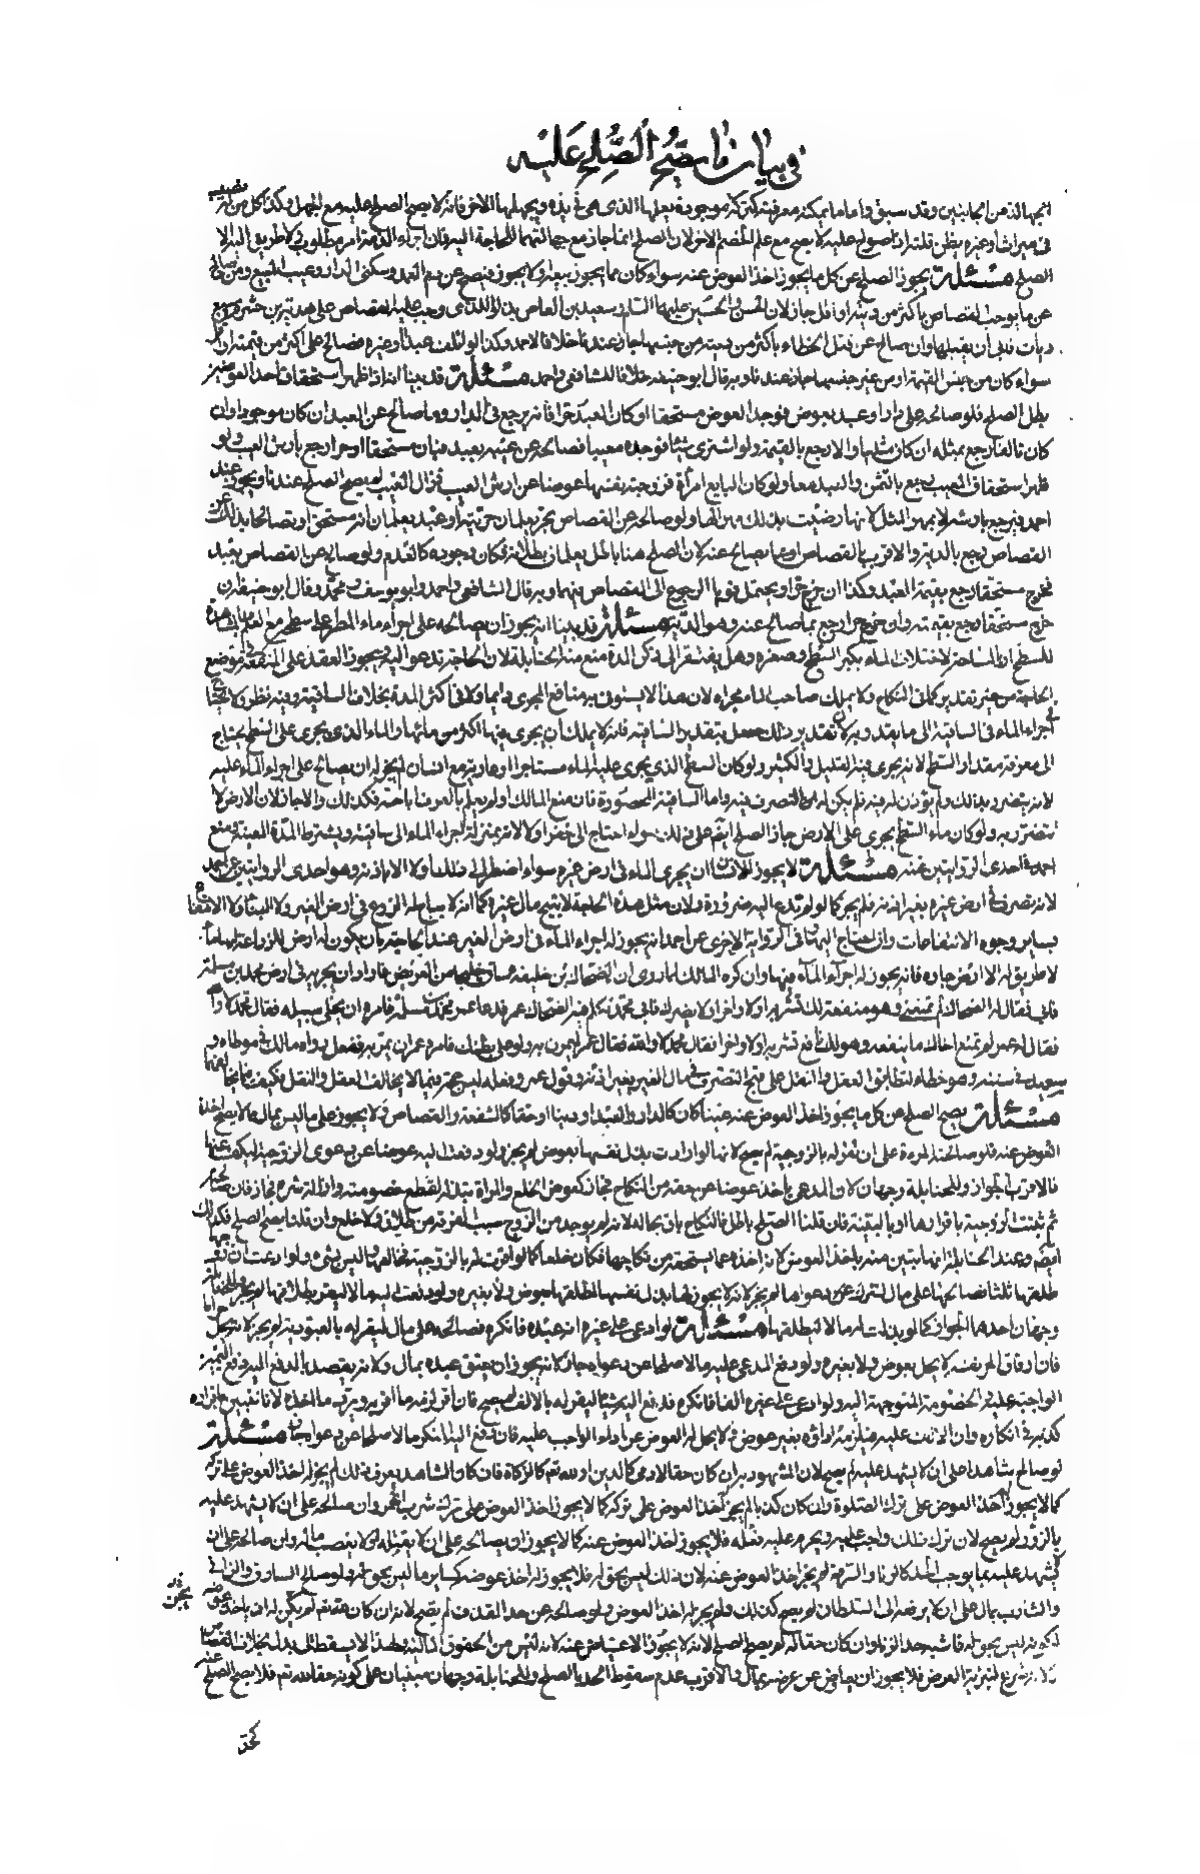 في بيان ما يصح الصلح عليه
الجهالة من الجانبين وقد سبق واما ما يمكنه معرفته كتركة موجودة يعلمها الذي هي في يده ويجهلها الاخر فانه لا يصح الصلح عليه مع الجهل وكذا كل من له نصيب
في ميراث او غيره يظن قلته اذا صولح عليه لا يصح مع علم الخصم الاخر لان الصلح انما جاز مع جهالتهما للحاجة اليه فان ابراء الذمة امر مطلوب لا طريق اليه الا
الصلح مسئلة يجوز الصلح عن كل ما يجوز اخذ العوض عنه سواء كان مما يجوز بيعه او لا يجوز فيصح عن دم العمد وسكنى الدار وعيب المبيع ومن صالح
عن ما يوجب القصاص باكثر من ديته او اقل جاز لان الحسن والحسين عليهما السلام وسعيد بن العاص بذلوا للذي وجب عليه القصاص على هدبة بن خشرم سبع
ديات فابى ان يقبلها وان صالح عن قتل الخطاء باكثر من ديته من جنسها جاز عندنا خلافا لاحمد وكذا لو اتلف عبدا او غيره فصالح على اكثر من قيمته او اقل
سواء كان من جنس القيمة او من غير جنسها جاز عندنا وبه قال ابو حنيفة خلافا للشافعي واحمد مسئلة قد بينا انه اذا ظهر استحقاق احد العوضين
بطل الصلح فلو صالحه على دار او عبد بعوض فوجد العوض مستحقا او كان العبد حرا فانه يرجع في الدار وما صالح عن العبد ان كان موجودا وان
كان تالفا رجع بمثله ان كان مثليا والا رجع بالقيمة ولو اشترى شيئا فوجده معيبا فصالحه عن عيبه بعبد فبان مستحقا او حرا رجع بارش العيب ولو
ظهر استحقاق المعيب رجع بالثمن والعبد معا ولو كان البايع امرأة فزوجته نفسها عوضا عن ارش العيب فزال العيب لم يصح الصلح عندنا ويجوز عند
احمد فيرجع بارشه لا بمهر المثل لانها رضيت بذلك مهرا لها ولو صالحه عن القصاص بحر يعلمان حريته او عبد يعلمان انه مستحق او تصالحا بذلك عن
القصاص رجع بالدية والاقرب بالقصاص او بما يصالح عنه لان الصلح هنا باطل يعلمان بطلانه فكان وجوده كالعدم ولو صالحه عن القصاص بعبد
فخرج مستحقا رجع بقيمة العبد وكذا ان خرج حرا ويحتمل قويا الرجوع الى القصاص فيهما وبه قال الشافعي واحمد وابو يوسف ومحمد وقال ابو حنيفة ان
خرج مستحقا رجع بقيمته وان خرج حرا رجع بما صالح عنه وهو الدية مسئلة قد بينا انه يجوز ان يصالحه على اجراء ماء المطر على سطحه مع العلم بمشاهدة
للسطح او المساحة لاختلاف الماء بكبر السطح وصغره وهل يفتقر الى ذكر المدة منع منه الحنابلة لان الحاجة تدعو اليه ويجوز العقد على المنفعة في موضع
الحاجة من غير تقدير كما في النكاح ولا يملك صاحب الماء مجراه لان هذا لا يستوفى به منافع المجرى دايما ولا في اكثر المدة بخلاف الساقية وفيه نظر ولا يحتاج
في اجراء الماء في الساقية الى ما يقدر به لان تقدير ذلك حصل بتقدير الساقية فانه لا يملك ان يجري فيها اكثر من مائها والماء الذي يجري على السطح يحتاج
الى معرفة مقدار السطح لانه يجري فيه القليل والكثير ولو كان السطح الذي يجري عليه الماء مستاجرا او عارية مع انسان لم يجز له ان يصالح على اجراء الماء عليه
لانه يتضرر بذلك ولم يؤذن له فيه فلم يكن له التصرف فيه واما الساقية المحصورة فان منع المالك او لم يعلم بالعرف اباحته فكذلك والا جاز لان الارض لا
تتضرر به ولو كان ماء السطح يجري على الارض جاز الصلح ايضا على ذلك سواء احتاج الى حفر او لا لانه بمنزلة اجراء الماء الى ساقية ويشترط المدة المعينة ومنع
احمد في احدى الروايتين عنه مسئلة لا يجوز للانسان ان يجري الماء في ارض غيره سواء اضطر الى ذلك او لا الا باذنه وهو احدى الروايتين عن احمد
لانه تصرف في ارض غيره بغير اذنه فلم يجز كما لو لم تدع اليه ضرورة ولان مثل هذه الحاجة لا تبيح مال غيره كما انه لا يباح له الزرع في ارض الغير ولا البناء ولا الانتفاع
بساير وجوه الانتفاعات وان احتاج اليها وفي الرواية الاخرى عن احمد انه يجوز له اجراء الماء في ارض الغير عند الحاجة بان يكون له ارض للزراعة لها ماء
لا طريق له الا ارض جاره فانه يجوز له اجراء الماء فيها وان كره المالك لما روي ان الضحاك بن خليفة ساق خليجا من العريض فاراد ان يجريه في ارض محمد بن مسلمة
فابى فقال له الضحاك لم تمنعني وهو منفعة لك تشربه اولا واخرا ولا يضرك فابى محمد فكلم فيه الضحاك عمر فدعا عمر محمد بن مسلمة فامره ان يخلي سبيله فقال محمد لا والله
فقال له عمر لم تمنع اخاك ما ينفعه وهو لك نافع تشربه اولا واخرا فقال محمد لا والله فقال عمر ليمرن به ولو على بطنك فامره عمر ان يمر به ففعل رواه مالك في موطاه و
سعيد في سننه وهو خطاء لتطابق العقل والنقل على قبح التصرف في مال الغير بغير اذنه وقول عمر وفعله ليس حجة فيما لا يخالف العقل والنقل فكيف فيما يخالفهما
مسئلة يصح الصلح عن كل ما يجوز اخذ العوض عنه عينا كان كالدار والعبد او دينا او حقا كالشفعة والقصاص ولا يجوز على ما ليس بمال مما لا يصح اخذ
العوض عنه فلو صالحته المرءة على ان تقر له بالزوجية لم يصح لانها لو ارادت بذل نفسها بعوض لم يجز ولو دفعت اليه عوضا عن دعوى الزوجية ليكف عنها
فالاقرب الجواز وللحنابلة وجهان لان المدعي ياخذ عوضا عن حقه من النكاح فجاز كعوض الخلع والمراة تبذله لقطع خصومته وازالة شره فجاز فان صالحته
ثم ثبتت الزوجية باقرارها او بالبينة فان قلنا الصلح باطل فالنكاح باق بحاله لانه لم يوجد من الزوج سبب الفرقة من طلاق ولا خلع وان قلنا يصح الصلح فكذلك
ايضا وعند الحنابلة انها تبين منه باخذ العوض لانه اخذه عما يستحقه من نكاحها فكان خلعا كما لو اقرت له بالزوجية فخالعها وليس بشيء ولو ادعت ان زوجها
طلقها ثلثا فصالحها على مال لتترك دعواها لم يجز لانه لا يجوز لها بذل نفسها لمطلقها بعوض ولا بغيره ولو دفعت اليه مالا ليقر بطلاقها لم يجز وللحنابلة
وجهان احدهما الجواز كما لو بذلت له مالا ليطلقها مسئلة لو ادعى على غيره انه عبده فانكره فصالحه على مال ليقر له بالعبودية لم يجز لانه يحل حراما
فان ارقاق الحر نفسه لا يحل بعوض ولا بغيره ولو دفع المدعى عليه مالا صلحا عن دعواه جاز لانه يجوز ان يعتق عبده بمال ولانه يقصد بالدفع اليه دفع اليمين
الواجبة عليه والخصومة المتوجهة اليه ولو ادعى على غيره الفا فانكره فدفع اليه شيئا ليقر له بالالف لم يصح فان اقر لزمه ما اقر به ويرد ما اخذه لانا تبينا باقراره
كذبه في انكاره وان الالف عليه فيلزمه اداؤه بغير عوض ولا يحل له العوض عن اداء الواجب عليه فان دفع اليه المنكر مالا صلحا عن دعواه جاز مسئلة
لو صالح شاهدا على ان لا يشهد عليه لم يصح لان المشهود به ان كان حقا لادمي كالدين او لله تعالى كالزكاة فان كان الشاهد يعرف ذلك لم يجز له اخذ العوض على تركه
كما لا يجوز اخذ العوض على ترك الصلوة وان كان كذبا لم يجز اخذ العوض على تركه كما لا يجوز اخذ العوض على ترك شرب الخمر وان صالحه على ان لا يشهد عليه
بالزور لم يصح لان ترك ذلك واجب عليه ويحرم عليه فعله فلا يجوز اخذ العوض عنه كما لا يجوز ان يصالحه على ان لا يقتله او لا يغصب ماله وان صالحه على ان
لا يشهد عليه بما يوجب الحد كالزنا والسرقة لم يجز اخذ العوض عنه لان ذلك ليس بحق له فلا يجوز له اخذ عوضه كساير ما ليس بحق له ولو صالح السارق والزاني
والشارب بمال على ان لا يرفعه الى السلطان لم يصح كذلك ولم يجز له اخذ العوض ولو صالحه عن حد القذف لم يصح لانه ان كان لله تعالى لم يكن له ان ياخذ عوضه
لكونه ليس بحق له فاشبه حد الزنا وان كان حقا له لم يصح الصلح لانه لا يجوز الاعتياض عنه لانه ليس من الحقوق المالية ولهذا لا يسقط الى بدل بخلاف القصاص
ولانه شرع لتنزيه العرض فلا يجوز ان يعتاض عن عرضه بمال والاقرب عدم سقوط الحد بالصلح وللحنابلة وجهان مبنيان على كونه حقا لله تعالى فلا يصح الصلح عنه
كحد